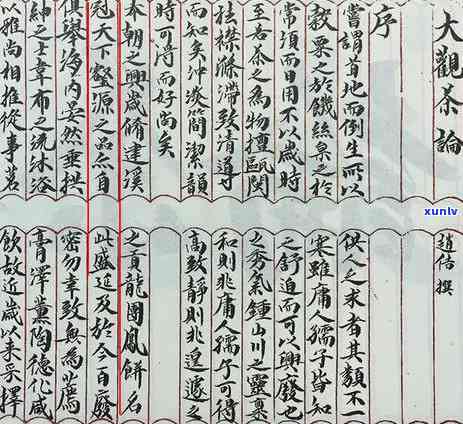 大觀茶論
趙佶 撰
序
嘗謂首地而倒生所以
供人之求者其類不一
穀粟之於饑絲枲之於
寒雖庸人孺子皆知
常須而日用不以歲時
之舒迫而可以興廢也
至若茶之為物擅甌閩
之秀氣鍾山川之靈稟
祛襟滌滯致清導
和則非庸人孺子可得
而知矣沖淡簡潔韻
高致靜則非遑遽之
時可得而好尚矣
本朝之興歲脩建溪
之貢龍團鳳餅名
冠天下壑源之品亦自
此盛延及於今百廢
俱舉海內晏然垂拱
密勿幸致無為薦
紳之士韋布之流沐浴
膏澤薰陶德化咸
以雅尚相推從事茗
飲故近歲以來采擇
xunlv